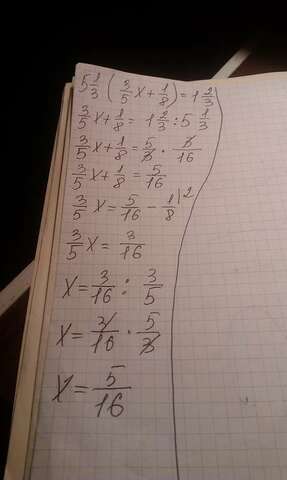 5 1/3 ( 3/5 x + 1/8 ) = 1 2/3
3/5 x + 1/8 = 1 2/3 : 5 1/3
3/5 x + 1/8 = 5/3 · 3/16
3/5 x + 1/8 = 5/16
3/5 x = 5/16 - 1/8 |2
3/5 x = 3/16
x = 3/16 : 3/5
x = 3/16 · 5/3
x = 5/16